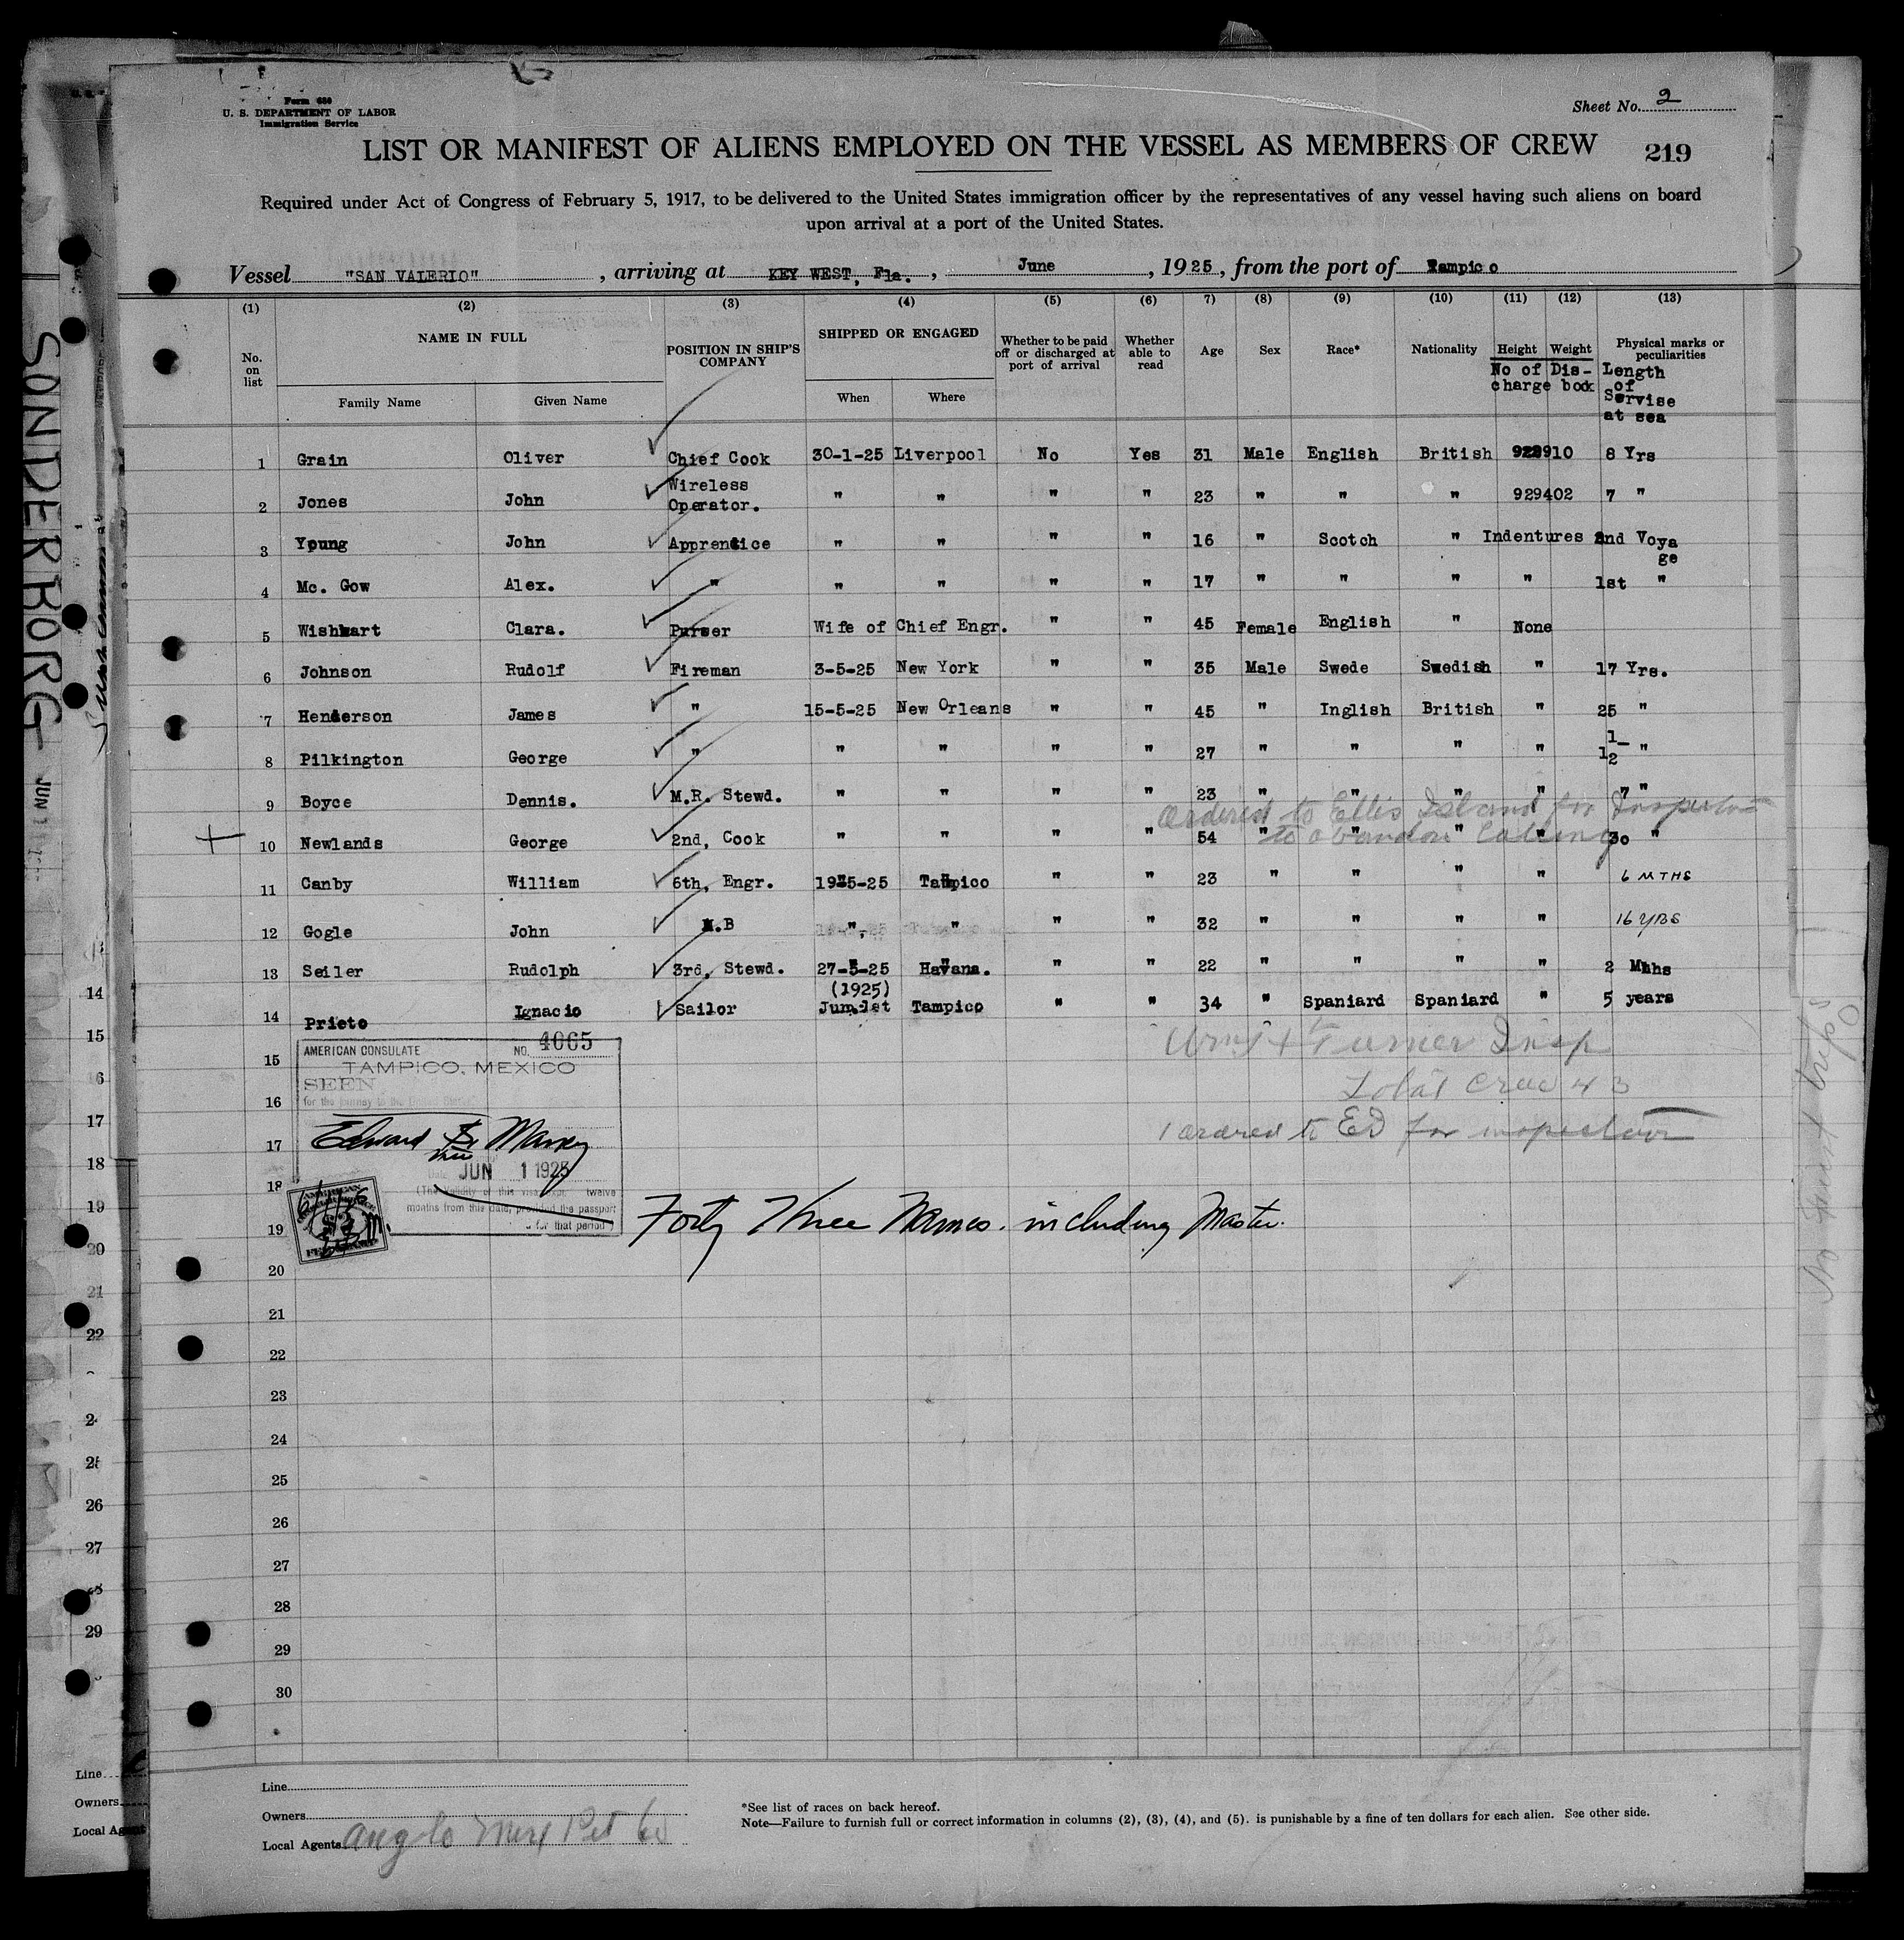 Form 680
U. S. DEPARTMENT OF LABOR
Immigration Service
Sheet No. 2
LIST OR MANIFEST OF ALIENS EMPLOYED ON THE VESSEL AS MEMBERS OF CREW
219
Required under Act of Congress of February 5, 1917, to be delivered to the United States immigration officer by the representatives of any vessel having such aliens on board
upon arrival at a port of the United States.
Vessel "SAN VALERIO", arriving at KEY WEST, Fla., June, 1925, from the port of Tampico
(1) (2) (3) (4) (5) (6) 7) (8) (9) (10) (11) (12) (13)
No. on list NAME IN FULL Family Name Given Name POSITION IN SHIP'S COMPANY SHIPPED OR ENGAGED When Where Whether to be paid off or discharged at port of arrival Whether able to read Age Sex Race* Nationality Height Weight Physical marks or peculiarities
No of Dis-charge book Length of Servise at sea
1 Grain Oliver Chief Cook 30-1-25 Liverpool No Yes 31 Male English British 922910 8 Yrs
2 Jones John Wireless Operator. " " " " 23 " " " 929402 7 "
3 Young John Apprentice " " " " 16 " Scotch " Indentures 2nd Voyage
4 Mc. Gow Alex. " " " " " 17 " " " " 1st "
5 Wishart Clara. Purser Wife of Chief Engr. " " 45 Female English " None
6 Johnson Rudolf Fireman 3-5-25 New York " " 35 Male Swede Swedish " 17 Yrs.
7 Henderson James " 15-5-25 New Orleans " " 45 " Inglish British " 25 "
8 Pilkington George " " " " " 27 " " " " 1 1/2 "
9 Boyce Dennis. M.R. Stewd. " " " " 23 " " " " 7 "
ordered to Ellis Island for Inspection
10 Newlands George 2nd, Cook " " " " 54 " " " " 30 "
to abandon Calling
11 Canby William 6th, Engr. 19-5-25 Tampico " " 23 " " " " 6 MTHS
12 Gogle John M.B " " " " 32 " " " " 16 YRS
13 Seiler Rudolph 3rd, Stewd. 27-5-25 Havana. " " 22 " " " " 2 Mhhs
14 Prieto Ignacio Sailor (1925) Jun.1st Tampico " " 34 " Spaniard Spaniard " 5 years
Turner Insp
Total Crew 43
1 ordered to EI for inspection
AMERICAN CONSULATE NO. 4065
TAMPICO, MEXICO
SEEN
for the journey to the United States
Edward
JUN 1 1925
(The validity of this visa twelve
months from this date, provided the passport
for that period)
Forty Three Names. including Master.
15
16
17
18
19
20
21
22
23
24
25
26
27
28
29
30
Line
Owners
Local Agents Anglo Mex Pet Co
*See list of races on back hereof.
Note—Failure to furnish full or correct information in columns (2), (3), (4), and (5). is punishable by a fine of ten dollars for each alien. See other side.
SONDERBORG
JUN
14
15
16
17
18
19
20
21
22
26
27
29
Line
Owners
Local Ag